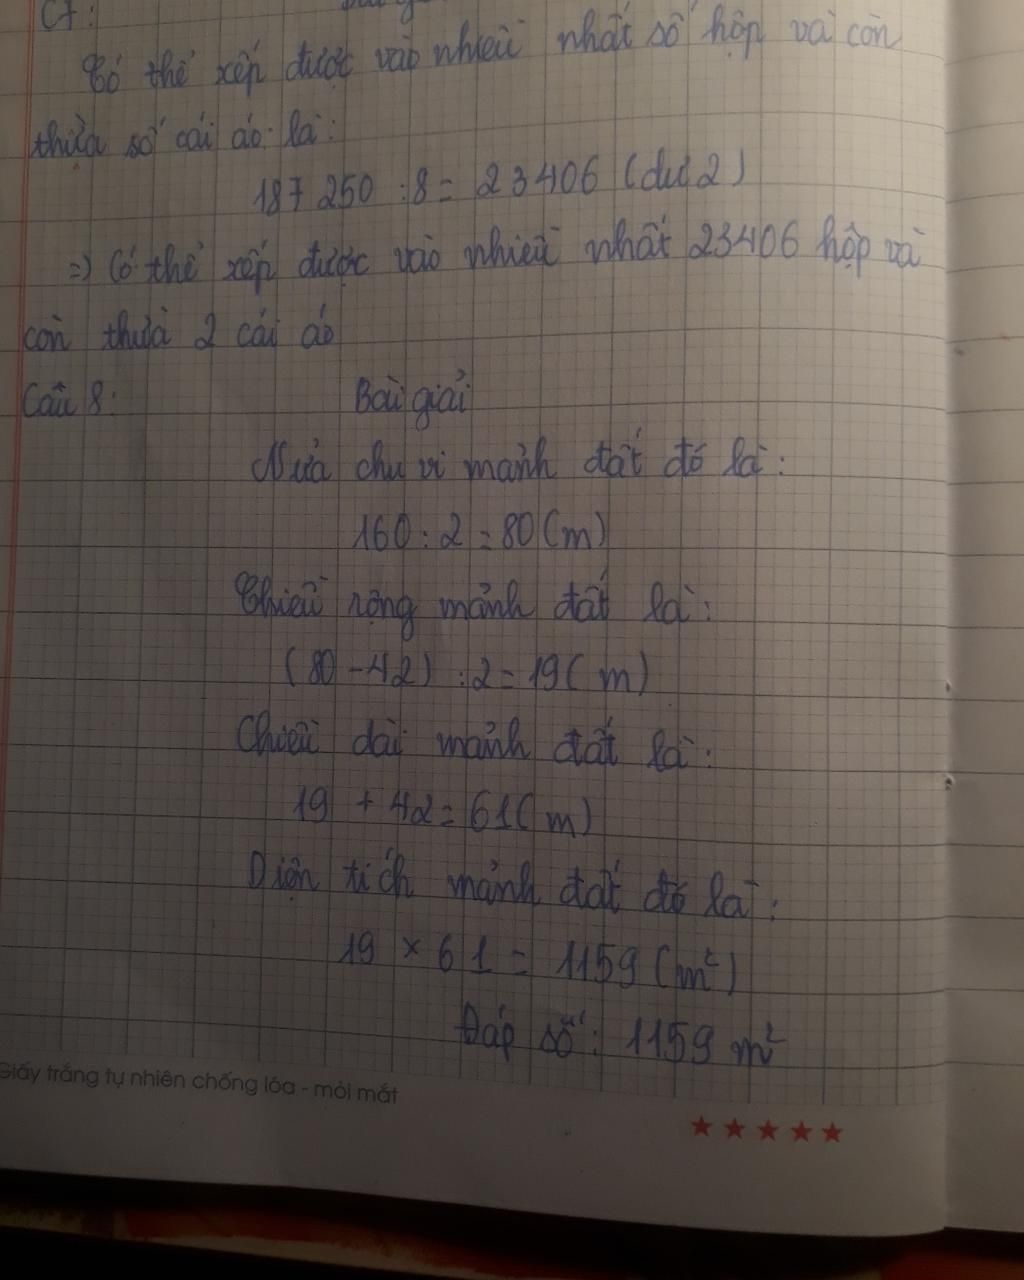 C7:
Có thể xếp được vào nhiều nhất số hộp và còn
thừa số cái áo là:
187 250 : 8 = 23406 (dư 2)
=) Có thể xếp được vào nhiều nhất 23406 hộp và
còn thừa 2 cái áo
Câu 8:
Bài giải
Nửa chu vi mảnh đất đó là:
160 : 2 = 80 (m)
Chiều rộng mảnh đất là:
(80 - 42) : 2 = 19 (m)
Chiều dài mảnh đất là:
19 + 42 = 61 (m)
Diện tích mảnh đất đó là:
19 × 61 = 1159 (m²)
Đáp số: 1159 m²
Giấy trắng tự nhiên chống lóa - mỏi mắt